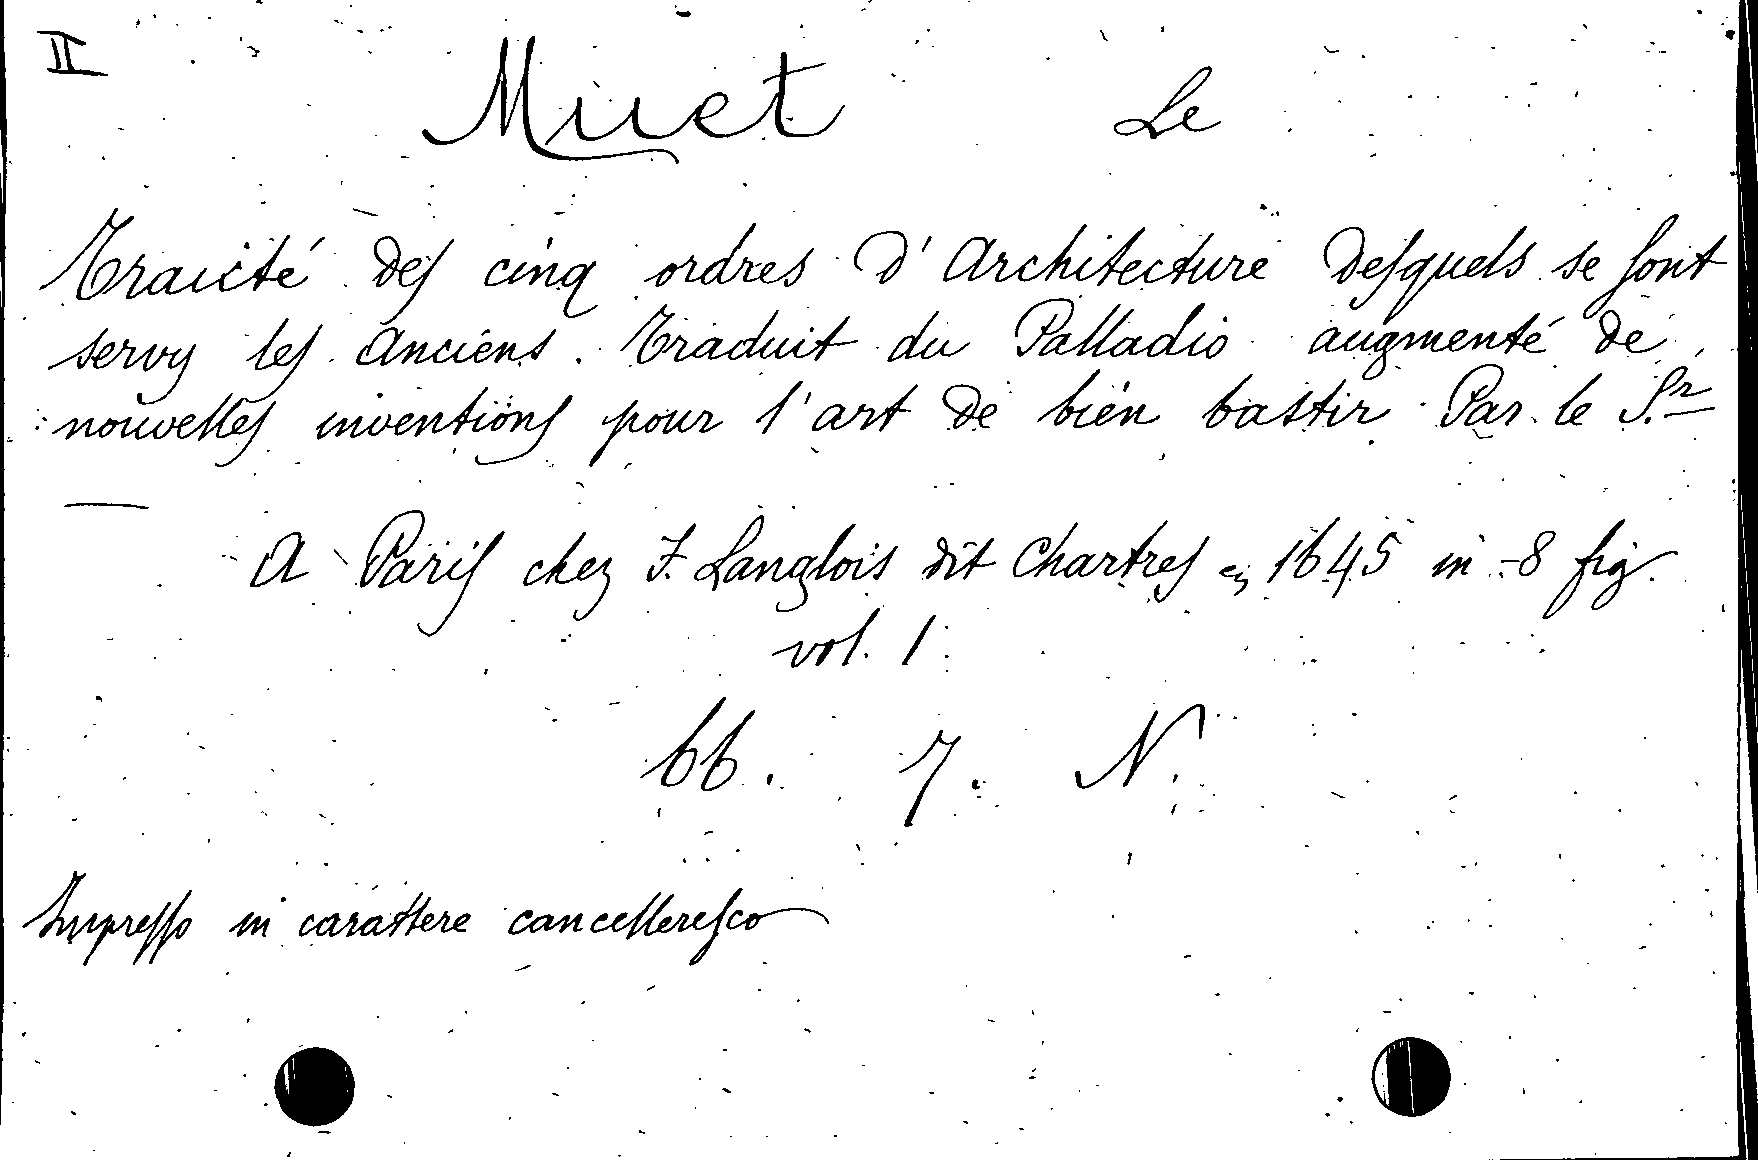 II
Muet Le
Traicté des cinq ordres d'Architecture desquels se sont
servy les Anciens. Traduit du Palladio augmenté de
nouvelles inventions pour l'art de bien bastir. Par le S.r
—
A Paris chez F. Langlois dit Chartres en 1645 in-8 fig.
vol. 1.
66. 7. N.
Impresso in carattere cancelleresco